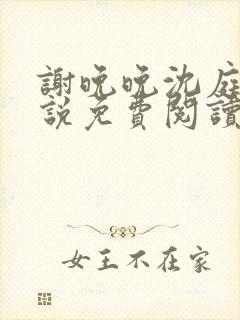 謝晚晚沈庭
說免費閱讀
女王不在家